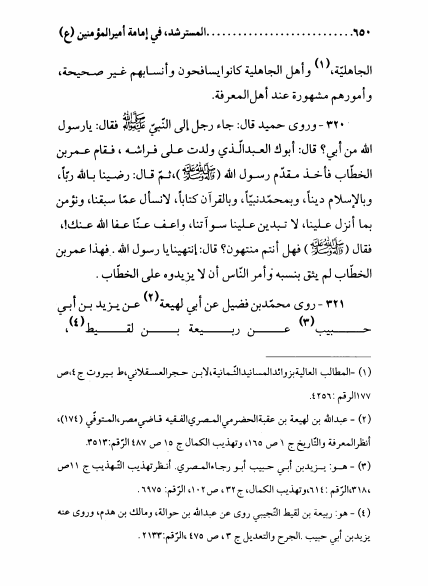 ٦٥٠............................المسترشد، في إمامة أميرالمؤمنين (ع)
الجاهليّة،(١) وأهل الجاهلية كانوا يسافحون وأنسابهم غير صحيحة،
وأمورهم مشهورة عند أهل المعرفة.
٣٢٠ - وروى حميد قال: جاء رجل إلى النبيّ ﷺ فقال: يارسول
الله من أبي؟ قال: أبوك العبدالّذي ولدت على فراشه ، فقام عمربن
الخطّاب فأخذ مقدّم رسول الله (ﷺ)،ثمّ قال: رضينا بالله ربّاً،
وبالإسلام ديناً، وبمحمّدنبيّاً، وبالقرآن كتاباً، لانسأل عمّا سبقنا، ونؤمن
بما أنزل علينا، لا تبدين علينا سوآتنا، واعف عنّا عفا الله عنك!،
فقال (ﷺ) فهل أنتم منتهون؟ قال: إنتهينا يا رسول الله . فهذا عمربن
الخطّاب لم يثق بنسبه وأمر النّاس أن لا يزيدوه على الخطّاب .
٣٢١ - روى محمّدبن فضيل عن أبي لهيعة(٢) عن يزيد بن أبي
حبيب(٣) عن ربيعة بن لقيط(٤)،
(١) -المطالب العالية بزوائد المسانيد الثّمانية،لابن حجر العسقلاني،ط بيروت ج٤،ص
١٧٧الرقم :٤٢٥٦.
(٢) - عبدالله بن لهيعة بن عقبة الحضرمي المصري الفقيه قاضي مصر،المتوفّي (١٧٤)،
أنظر المعرفة والتّاريخ ج ١ ص ١٦٥، وتهذيب الكمال ج ١٥ ص ٤٨٧ الرّقم:٣٥١٣.
(٣) - هـو: يزيدبن أبي حبيب أبو رجاء المصري. أنظر تهذيب التّهذيب ج ١١ص
٣١٨،الرقم :٦١٤،وتهذيب الكمال، ج٣٢ ، ص١٠٢، الرّقم: ٦٩٧٥ .
(٤) - هو: ربيعة بن لقيط التّجيبي روى عن عبدالله بن حوالة، ومالك بن هدم، وروى عنه
يزيدبن أبي حبيب .الجرح والتعديل ج ٣ ، ص ٤٧٥ ،الرّقم:٢١٣٣.